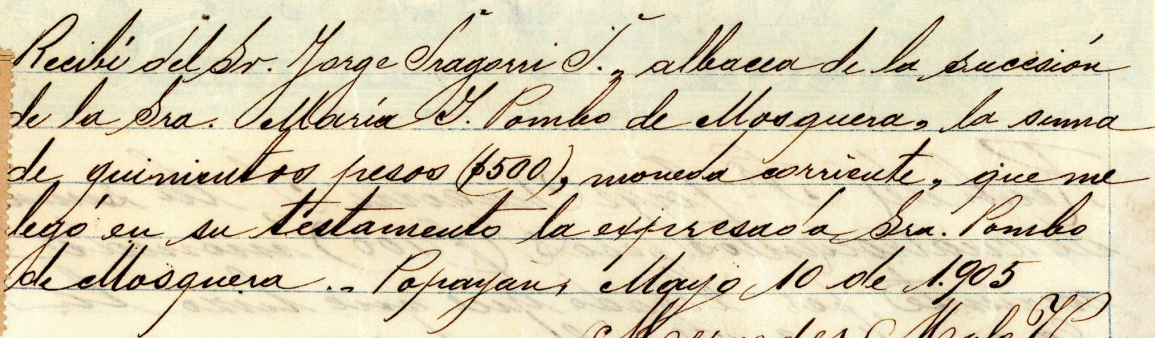 Recibí del Sr. Jorge Iragorri I., albacea de la sucesión
de la Sra. María J. Pombo de Mosquera, la suma
de quinientos pesos ($500), moneda corriente, que me
legó en su testamento la expresada Sra. Pombo
de Mosquera.- Popayán, Mayo 10 de 1.905
Mercedes